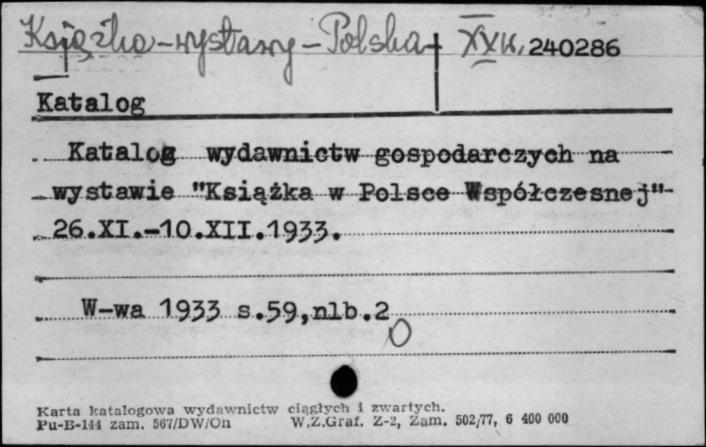 Książka-wystawy-Polska XX w. 240286
Katalog
Katalog wydawnictw gospodarczych na
wystawie "Książka w Polsce Współczesnej"
26.XI.-10.XII.1933.
W-wa 1933 s.59,nlb.2
Karta katalogowa wydawnictw ciągłych i zwartych.
Pu-B-144 zam. 567/DW/On W.Z.Graf. Z-2, Zam. 502/77, 6 400 000